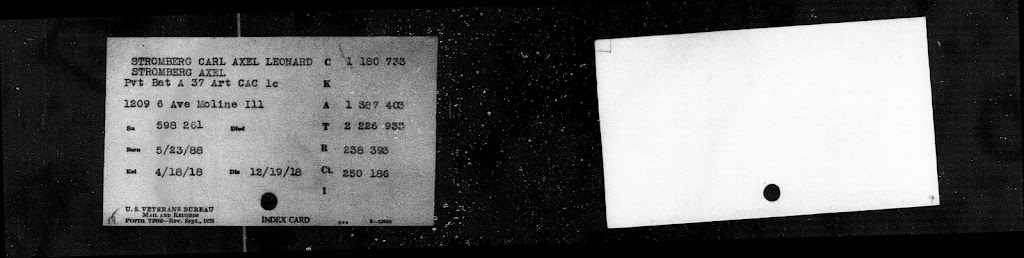 STROMBERG CARL AXEL LEONARD C 1 180 733
STROMBERG AXEL
Pvt Bat A 37 Art CAC 1c K
1209 6 Ave Moline Ill A 1 387 403
Sn 598 261 Died T 2 226 933
Born 5/23/88 R 238 393
Enl 4/18/18 Dis 12/19/18 Ct. 250 186
I
U. S. VETERANS BUREAU
MAIL AND RECORDS
Form 7202—Rev. Sept., INDEX CARD